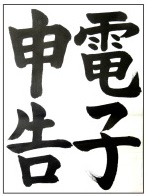 電子
申告